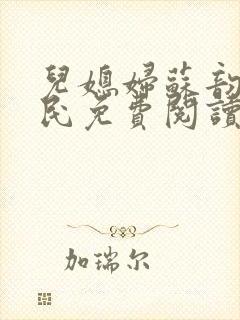 兒媳婦蘇韵
民免費閱讀
加瑞尔